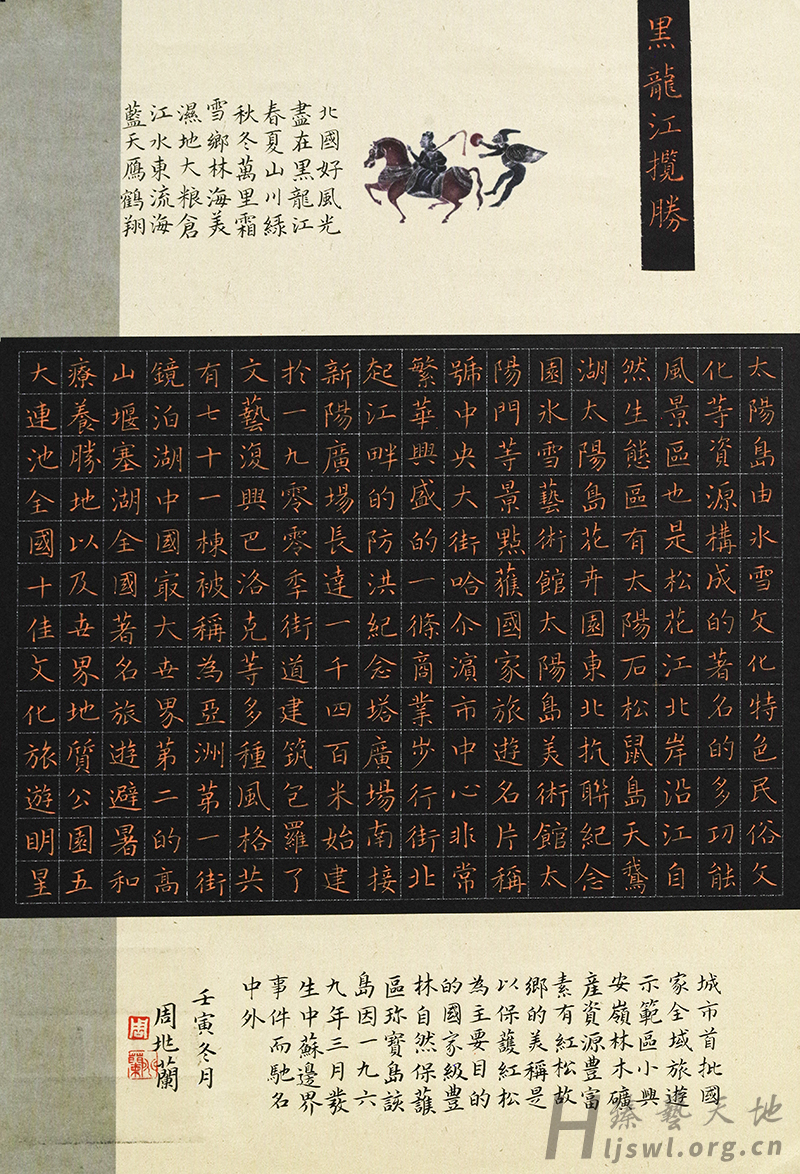 黑龍江攬勝
北國好風光
盡在黑龍江
春夏山川綠
秋冬萬里霜
雪鄉林海美
濕地大粮倉
江水東流海
藍天雁鶴翔
太陽島由氷雪文化特色民俗文
化等資源構成的著名的多功能
風景區也是松花江北岸沿江自
然生態區有太陽石松鼠島天鵞
湖太陽島花卉園東北抗聯紀念
園氷雪藝術館太陽島美術館太
陽門等景點獲國家旅遊名片稱
號中央大街哈尒濱市中心非常
繁華興盛的一條商業步行街北
起江畔的防洪紀念塔廣場南接
新陽廣場長達一千四百米始建
於一九零零年街道建筑包羅了
文藝復興巴洛克等多種風格共
有七十一棟被稱為亞洲第一街
鏡泊湖中國最大世界第二的高
山堰塞湖全國著名旅遊避暑和
療養勝地以及世界地質公園五
大連池全國十佳文化旅遊明星
城市首批國
家全域旅遊
示範區小興
安嶺林木礦
産資源豊富
素有紅松故
鄉的美稱是
以保護紅松
為主要目的
的國家級豊
林自然保護
區珎寶島該
島因一九六
九年三月發
生中蘇邊界
事件而馳名
中外
壬寅冬月
周兆蘭
臻藝天地
Hljswl.org.cn